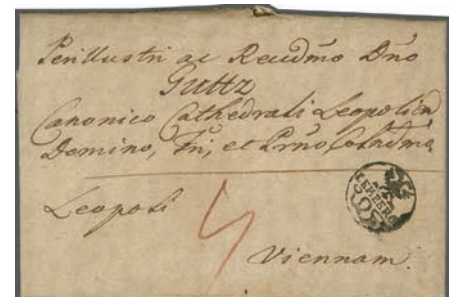 Perillustri ac Reudmo Dno
Guttz
Canonico Cathedrali Leopolien
Domino, Fri, et Prno Colndmo
Leopoli
Viennam.